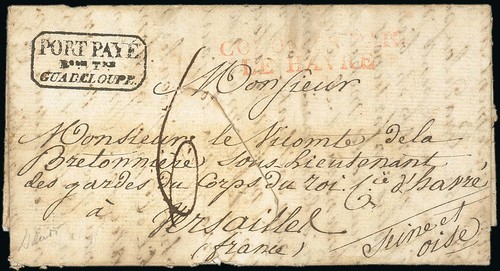 PORT PAYÉ
Bse Tre
GUADELOUPE
LE HAVRE
Monsieur
Monsieur le Vicomte de la
Bretonniere sous Lieutenant
des gardes du Corps du roi. Cie d'havré
à Versailles
(france)
Seine et
oise